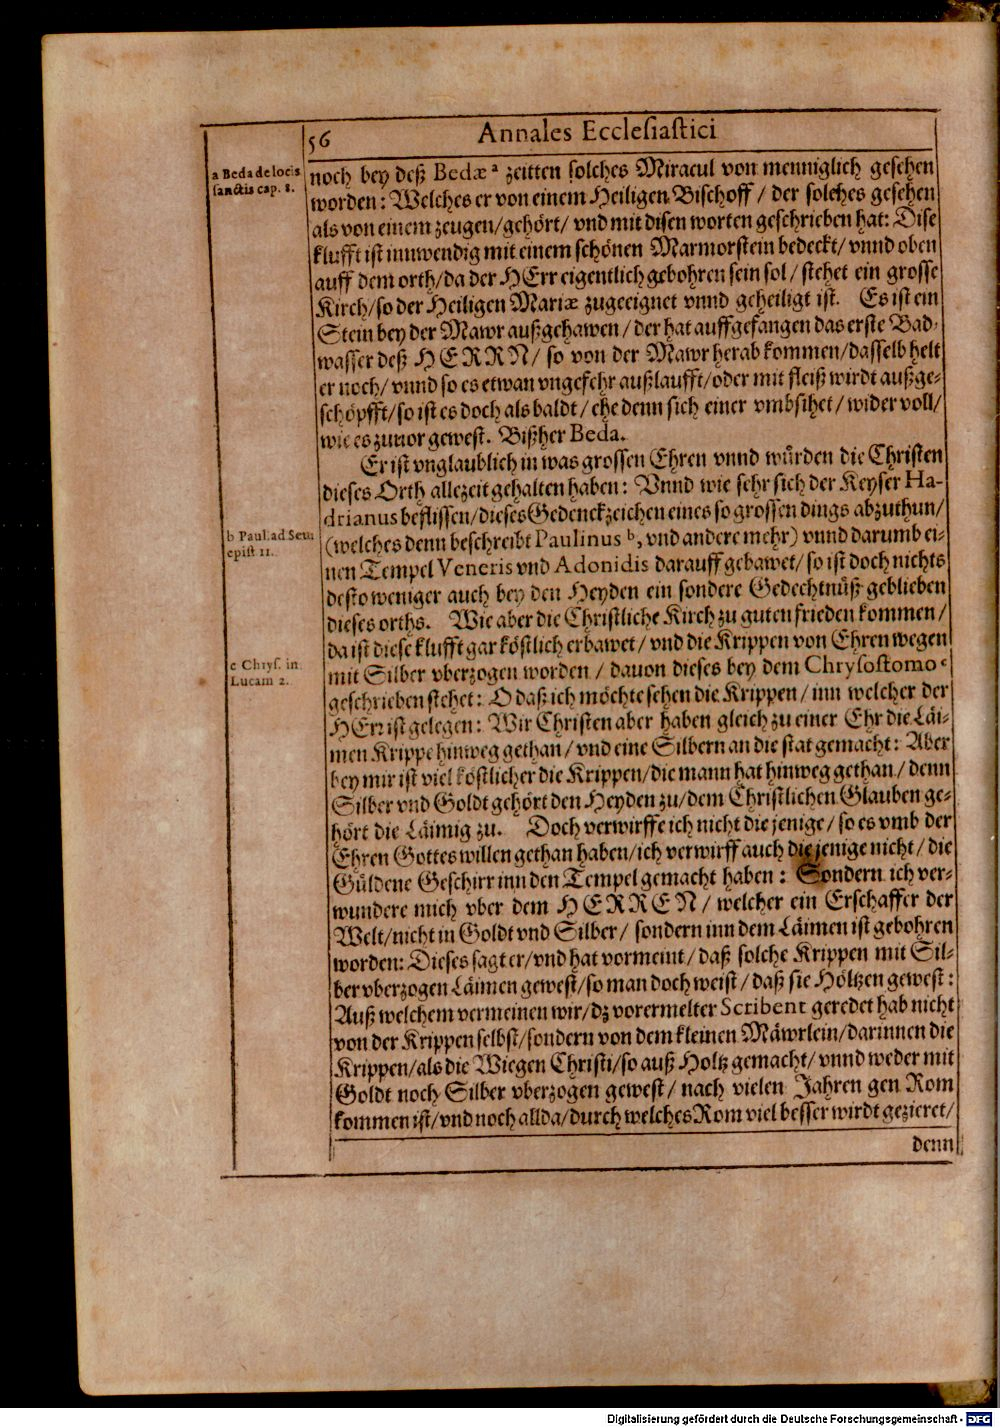 56 Annales Ecclesiastici
a Beda de locis
sanctis cap. 8.
noch bey deß Bedæ ᵃ zeitten solches Miracul von menniglich gesehen
worden: Welches er von einem Heiligen Bischoff / der solches gesehen
als von einem zeugen/gehört/ vnd mit disen worten geschrieben hat: Dise
klufft ist innwendig mit einem schönen Marmorstein bedeckt/ vnnd oben
auff dem orth/da der HErr eigentlich gebohren sein sol/ stehet ein grosse
Kirch/so der Heiligen Mariæ zugeeignet vnnd geheiligt ist. Es ist ein
Stein bey der Mawr außgehawen / der hat auffgefangen das erste Bad-
wasser deß HERRN/ so von der Mawr herab kommen/dasselb helt
er noch/ vnnd so es etwan vngefehr außlaufft/oder mit fleiß wirdt außge-
schöpfft/so ist es doch als baldt / ehe denn sich einer vmbsihet/ wider voll/
wie es zuuor gewest. Bißher Beda.
Er ist vnglaublich in was grossen Ehren vnnd würden die Christen
dieses Orth allezeit gehalten haben: Vnnd wie sehr sich der Keyser Ha-
drianus beflissen/dieses Gedenckzeichen eines so grossen dings abzuthun/
b Paul. ad Seu.
epist 11.
(welches denn beschreibt Paulinus ᵇ, vnd andere mehr) vnnd darumb ei-
nen Tempel Veneris vnd Adonidis darauff gebawet/ so ist doch nichts
desto weniger auch bey den Heyden ein sondere Gedechtnüß geblieben
dieses orths. Wie aber die Christliche Kirch zu guten frieden kommen/
da ist diese klufft gar köstlich erbawet/ vnd die Krippen von Ehren wegen
c Chrys. in
Lucam 2.
mit Silber vberzogen worden / dauon dieses bey dem Chrysostomo ᶜ
geschrieben stehet: O daß ich möchte sehen die Krippen / inn welcher der
HErr ist gelegen: Wir Christen aber haben gleich zu einer Ehr die Läi-
men Krippe hinweg gethan/ vnd eine Silbern an die stat gemacht: Aber
bey mir ist viel köstlicher die Krippen/die mann hat hinweg gethan/ denn
Silber vnd Goldt gehört den Heyden zu/dem Christlichen Glauben ge-
hört die Läimig zu. Doch verwirffe ich nicht die jenige / so es vmb der
Ehren Gottes willen gethan haben/ich verwirff auch die jenige nicht / die
Güldene Geschirr inn den Tempel gemacht haben : Sondern ich ver-
wundere mich vber dem HERREN / welcher ein Erschaffer der
Welt/nicht in Goldt vnd Silber/ sondern inn dem Läimen ist gebohren
worden: Dieses sagt er/vnd hat vormeint/ daß solche Krippen mit Sil-
ber vberzogen Läimen gewest/so man doch weist / daß sie Höltzen gewest:
Auß welchem vermeinen wir/dz vorermelter Scribent geredet hab nicht
von der Krippen selbst/sondern von dem kleinen Mäwrlein/darinnen die
Krippen/als die Wiegen Christi/so auß Holtz gemacht/ vnnd weder mit
Goldt noch Silber vberzogen gewest/ nach vielen Jahren gen Rom
kommen ist/vnd noch allda/durch welches Rom viel besser wirdt gezieret/
denn
Digitalisierung gefördert durch die Deutsche Forschungsgemeinschaft - DFG